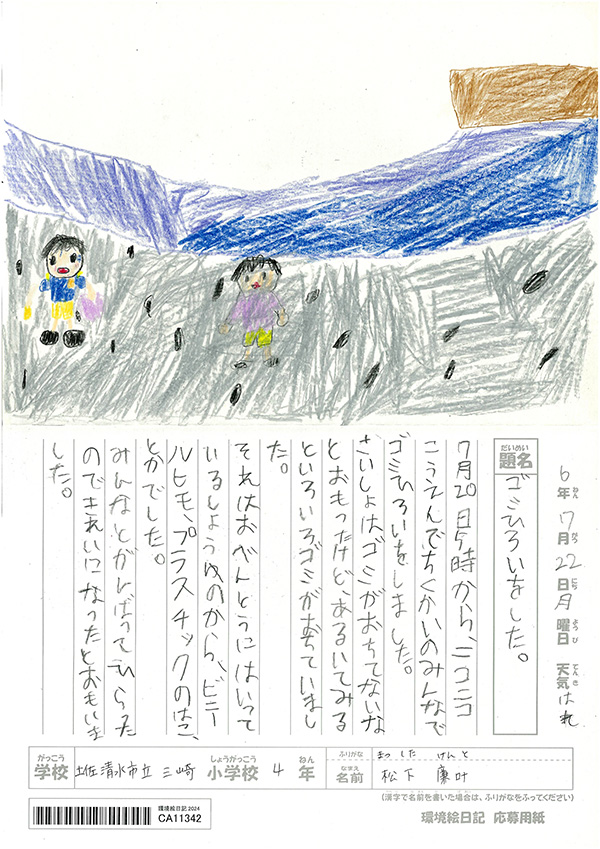 6年 7月 22日 月曜日 天気 はれ
ねん がつ にち ようび てんき
だいめい
題名
ゴミひろいをした。
7月20日5時から、ニコニコ
こうえんでちくかいのみんなで
ゴミひろいをしました。
さいしょはゴミがおちてないな
とおもったけど、あるいてみる
といろいろゴミが落ちていまし
た。
それはおべんとうにはいって
いるしょうゆのから、ビニー
ルヒモ、プラスチックのはこ、
とかでした。
みんなとがんばってひらった
のできれいになったとおもいま
した。
がっこう
学校
土佐清水市立 三崎
しょうがっこう
小学校
4
ねん
年
ふりがな
まつした けんと
なまえ
名前
松下
叶
(漢字で名前を書いた場合は、ふりがなをふってください)
環境絵日記 2024
CA11342
環境絵日記 応募用紙